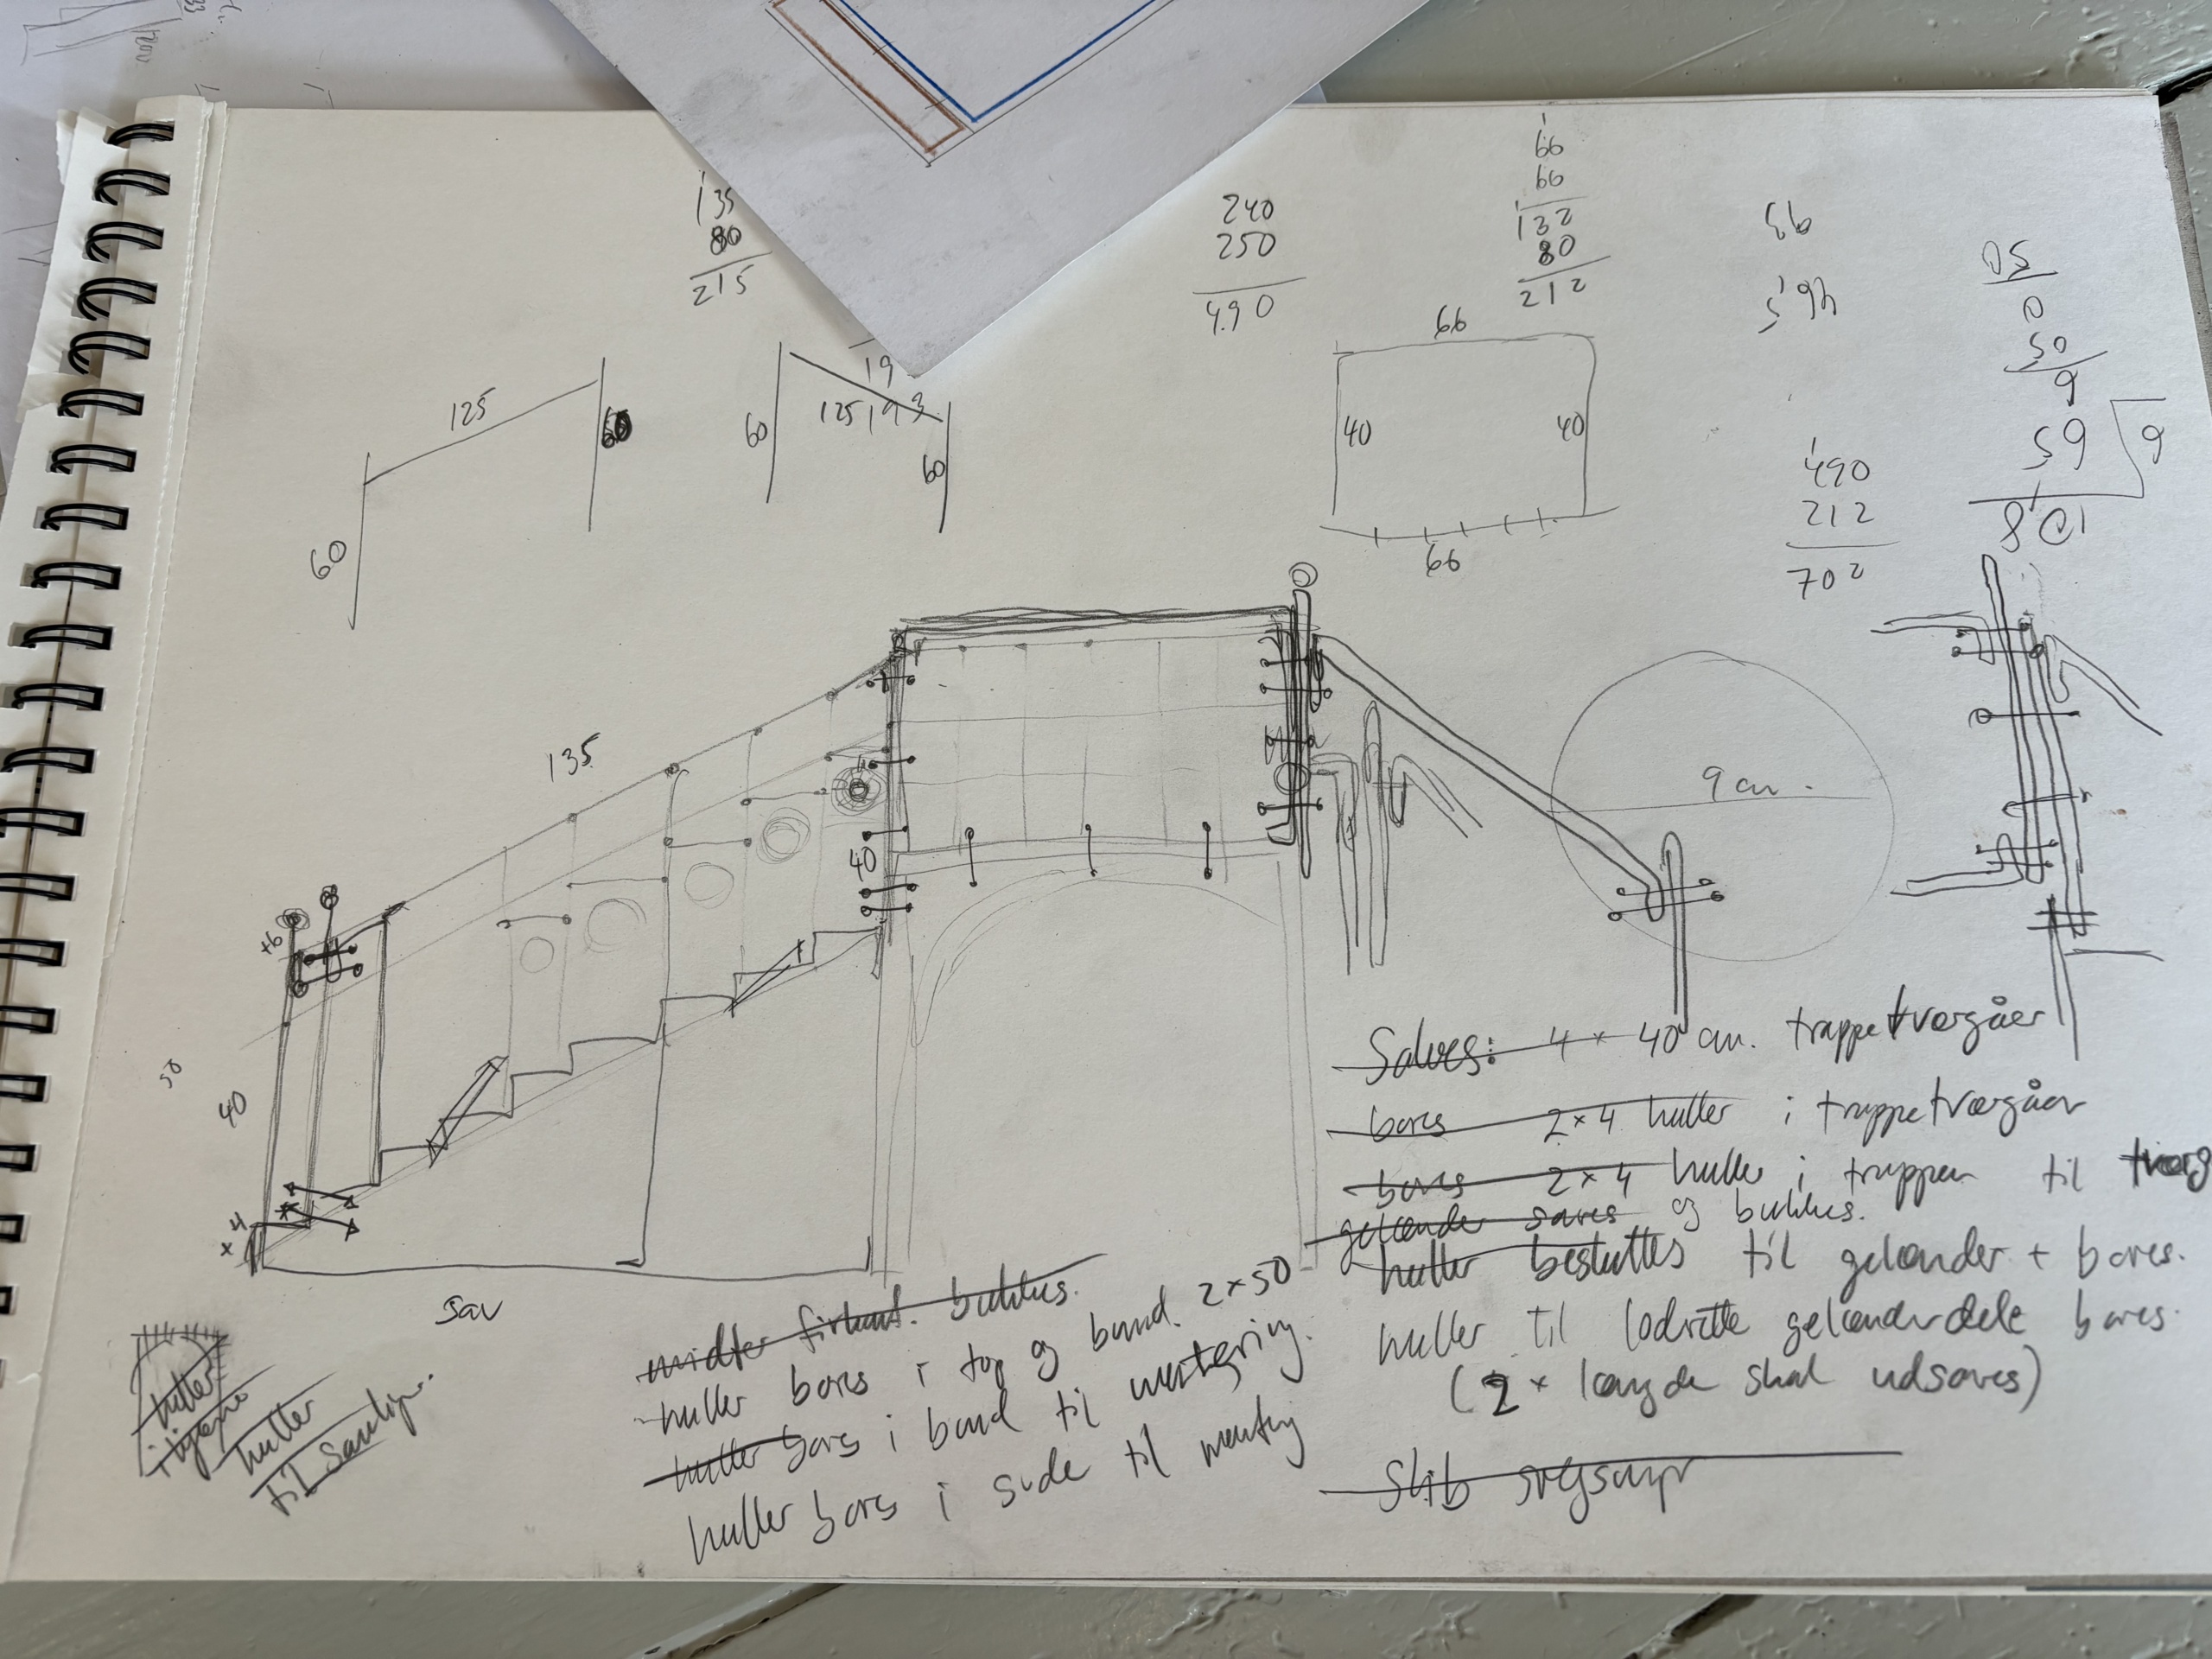 135
80
215
240
250
490
66
66
132
80
212
93
46,5
50
125
60
60
19
125 19 3
60
60
66
40
40
66
490
212
702
65
108
135
9 cm.
40
+6
50
40
x4
sav
Saves: 4 x 40 cm. trappetværgåer
bores 2x4 huller i trappetværgåer
bores 2x4 huller i trappen til tværg
gelænder saves og bukkes.
huller besluttes til gelænder + bores.
huller til lodrette gelænderdele bores.
(2 x længde skal udsaves)
Slib svejsninger
midter firkant. bukkes.
huller bores i top og bund. 2x50
huller bores i bund til montering.
huller bores i side til montering
huller
huller
til samling.